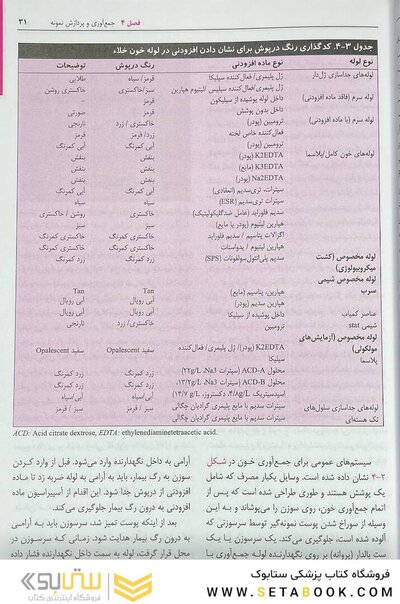 فصل ۴ جمع‌آوری و پردازش نمونه ۳۱
جدول ۳-۴. کدگذاری رنگ درپوش برای نشان دادن افزودنی در لوله خون خلاء
نوع لوله نوع ماده افزودنی رنگ درپوش توضیحات
لوله‌های جداسازی ژل‌دار ژل پلیمری/ فعال‌کننده سیلیکا قرمز/ سیاه طلایی
ژل پلیمری/فعال‌کننده سیلیس /لیتیوم هپارین سبز/خاکستری خاکستری روشن
لوله سرم (فاقد ماده افزودنی) داخل لوله پوشیده از سیلیکون قرمز
داخل بدون پوشش قرمز صورتی
لوله سرم (با ماده افزودنی) ترومبین (پودر) خاکستری / زرد نارنجی
فعال‌کننده خاص لخته زرد/ قرمز قرمز
لوله‌های خون کامل/پلاسما ترومبین (پودر) آبی کمرنگ آبی کمرنگ
K2EDTA (پودر) بنفش بنفش
K3EDTA (مایع) بنفش بنفش
Na2EDTA (پودر) بنفش بنفش
سیترات، تری‌سدیم (انعقادی) آبی کمرنگ آبی کمرنگ
سیترات تری‌سدیم (ESR) سیاه سیاه
سدیم فلوراید (عامل ضدگلیکولیتیک) خاکستری روشن / خاکستری
هپارین لیتیوم (پودر یا مایع) سبز سبز
اگزالات پتاسیم / سدیم فلوراید خاکستری کمرنگ خاکستری کمرنگ
هپارین لیتیوم / یدواستات خاکستری کمرنگ خاکستری کمرنگ
لوله مخصوص (کشت سدیم پلی‌انتول‌سولفونات (SPS) زرد کمرنگ زرد کمرنگ
میکروبیولوژی)
لوله مخصوص شیمی
سرب هپارین، پتاسیم (مایع) Tan Tan
هپارین سدیم (پودر) آبی رویال آبی رویال
عناصر کمیاب داخل پوشیده از سیلیکا آبی رویال آبی رویال
شیمی stat ترومبین خاکستری/ زرد نارنجی
لوله مخصوص (آزمایش‌های
مولکولی) K2EDTA (پودر)/ ژل پلیمری/ فعال‌کننده سفید Opalescent سفید Opalescent
پلاسما سیلیکا
محلول ACD-A (سیترات Na3، ۲۲g/L زرد کمرنگ زرد کمرنگ
محلول ACD-B (سیترات Na3، ۱۳/۲g/L، زرد کمرنگ زرد کمرنگ
اسیدسیتریک ۴/۸g/L، دکستروز، ۱۴/۷ g/L) آبی /سیاه آبی /سیاه
لوله‌های جداسازی سلول‌های سیترات سدیم با مایع پلیمری گرادیان چگالی سبز / قرمز سبز / قرمز
تک هسته‌ای سیترات سدیم با مایع پلیمری گرادیان چگالی
ACD: Acid citrate dextrose, EDTA: ethylenediaminetetraacetic acid.
سیستم‌های عمومی برای جمع‌آوری خون در شکل
۲-۴ نشان داده شده است. وسایل یکبار مصرف که شامل
یک پوشش هستند و طوری طراحی شده است که پس از
اتمام جمع‌آوری خون، روی سوزن را می‌پوشاند و به این
وسیله از سوراخ شدن پوست نمونه‌گیر توسط سرسوزنی که
آلوده است، جلوگیری می‌کند. یک سرسوزن یا یک
ست بالدار (پروانه) بر روی نگهدارنده لوله جمع‌آوری با
آرامی به داخل نگهدارنده وارد می‌شود. قبل از وارد کردن
سوزن به رگ بیمار، باید به آرامی به لوله ضربه زد تا ماده
افزودنی از درپوش جدا شود. این اقدام از آسپیراسیون ماده
افزودنی به درون رگ بیمار جلوگیری می‌کند.
بعد از اینکه پوست تمیز شد، سرسوزن باید به آرامی
به درون رگ بیمار هدایت شود. زمانی که سرسوزن در
محل قرار گرفت، لوله به سمت داخل نگهدارنده فشار داده
ستابوک
فروشگاه اینترنتی کتاب
فروشگاه کتاب پزشکی ستابوک
WWW.SETABOOK.COM